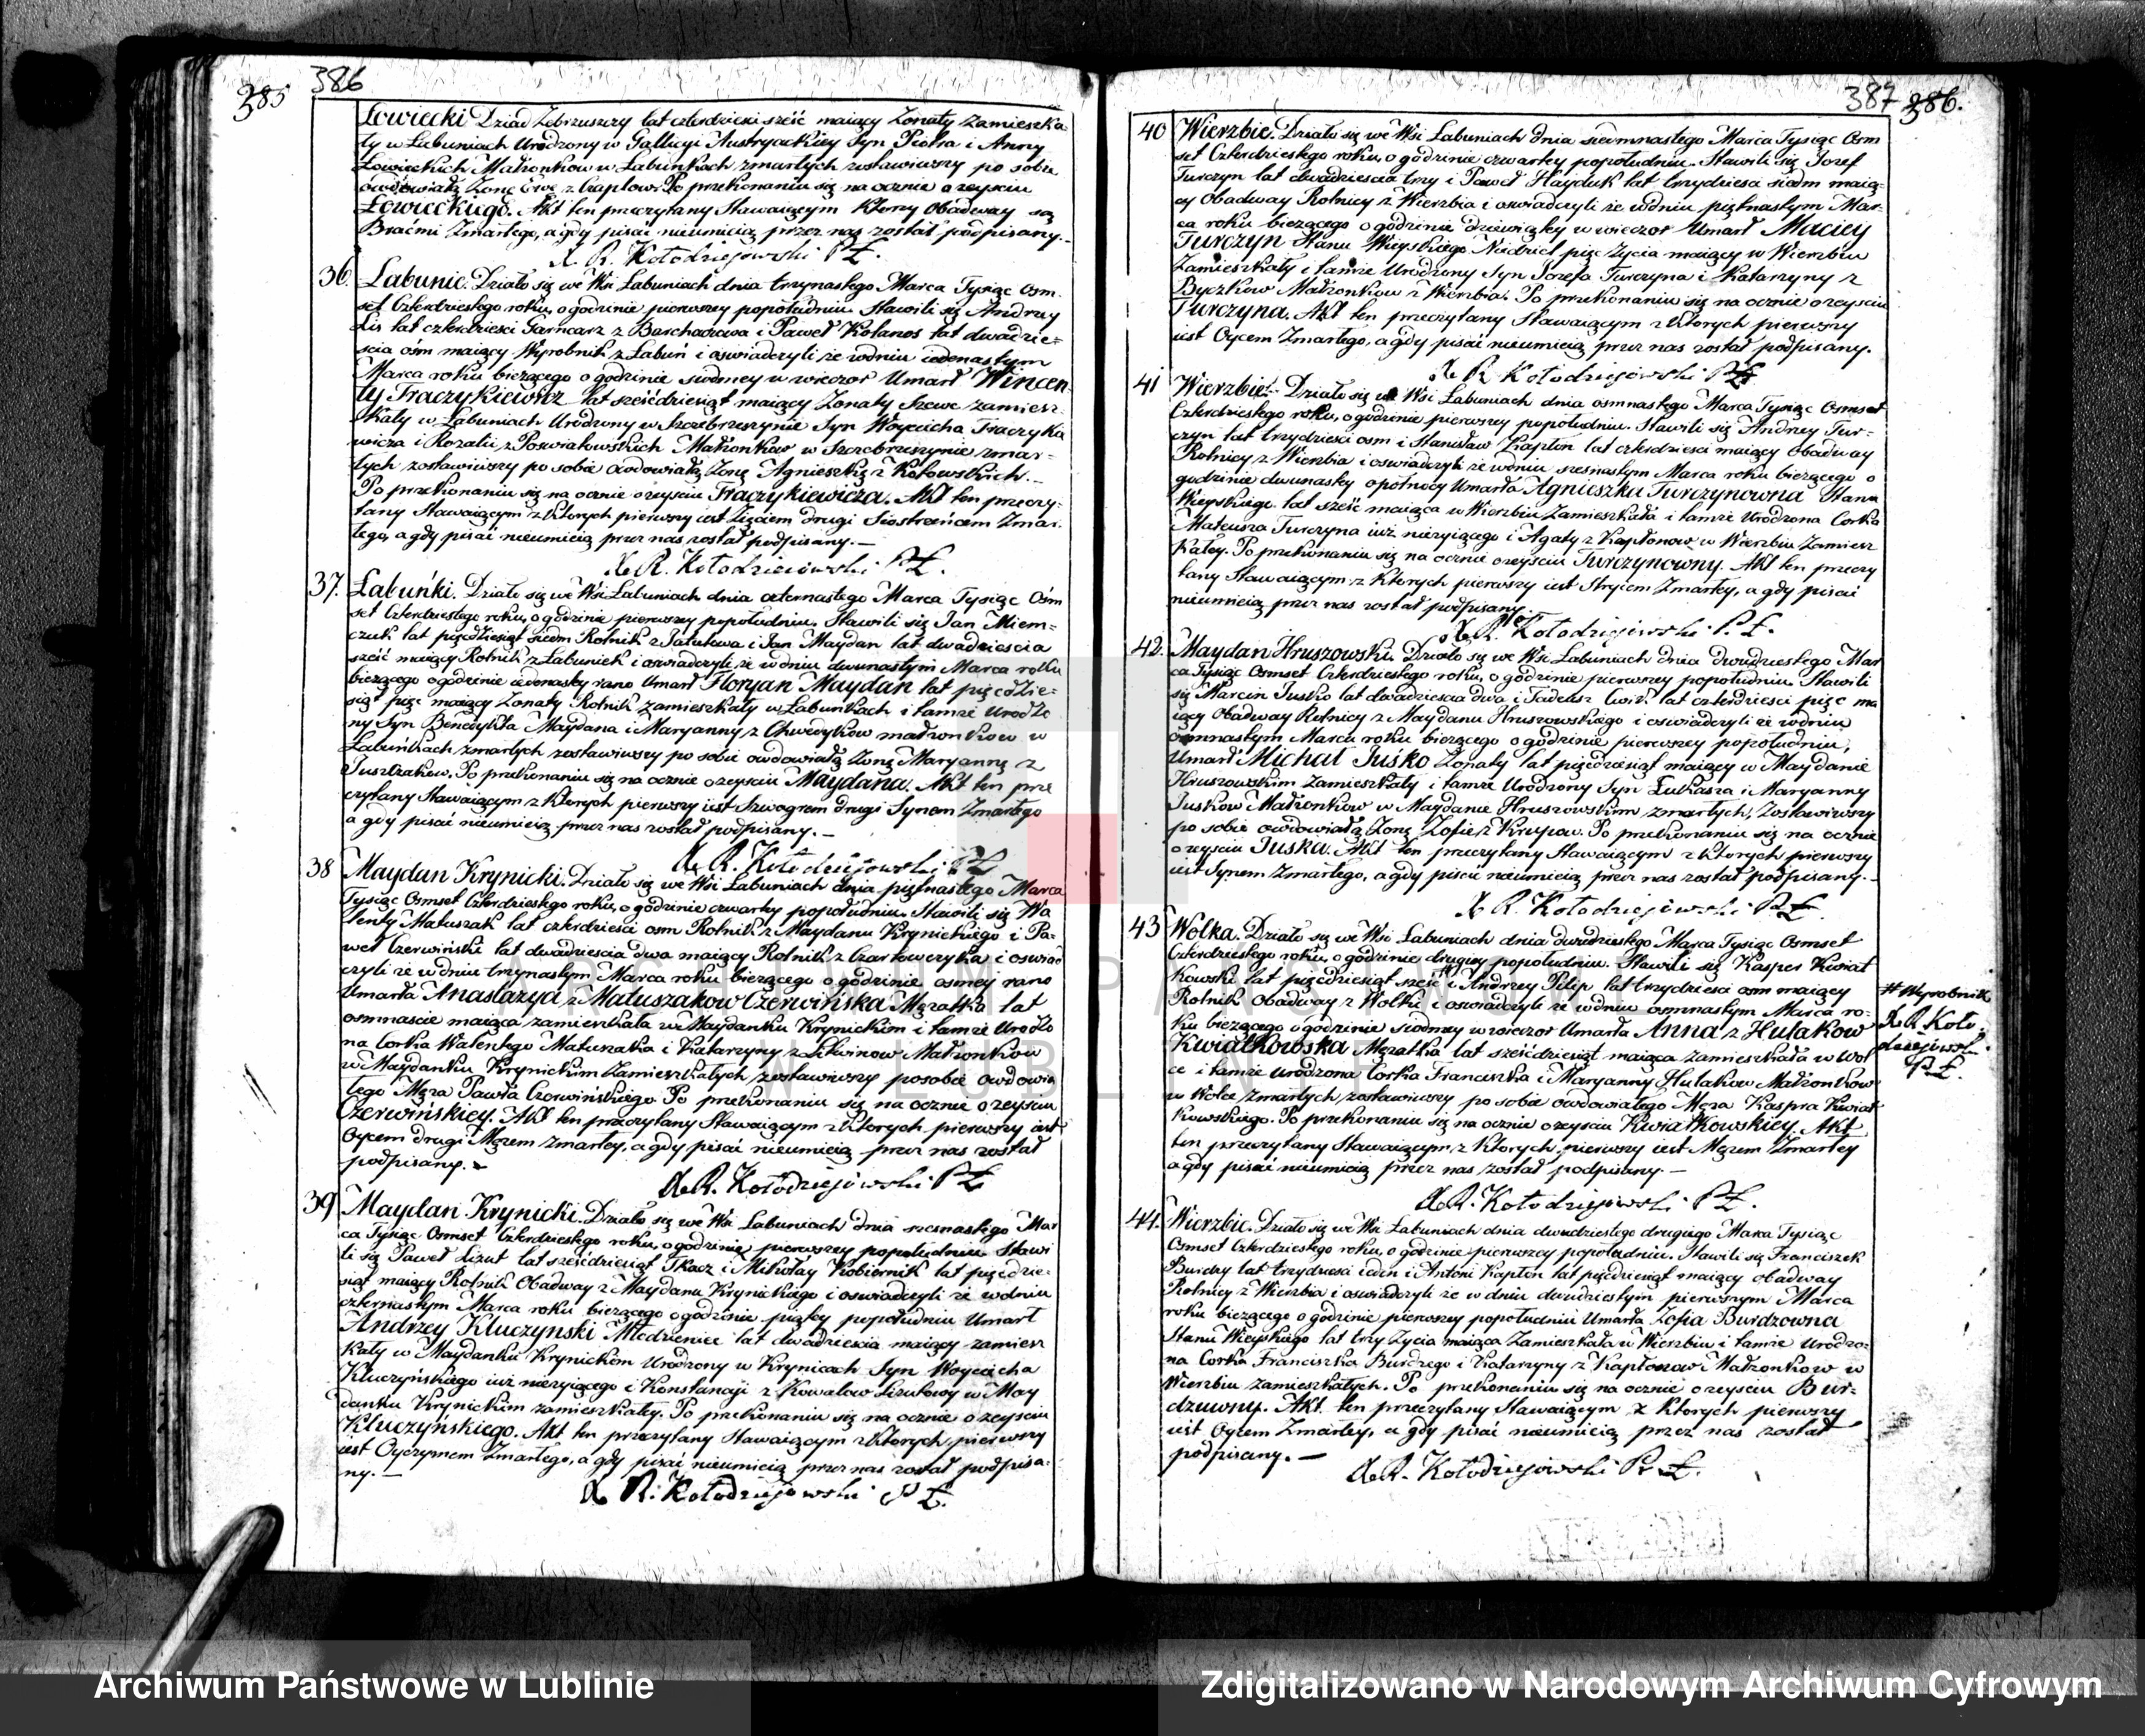 385 386
Łowiecki Dziad Żebrzuszczy lat czterdzieści sześć maiący Żonaty zamieszka
ły w Łabuniach Urodzony w Gallicyi Austryackiey Syn Piotra i Anny
Łowieckich Małżonków w Łabuńkach zmarłych zostawiwszy po sobie
owdowiałą Żonę Ewę z Czapłow. Po przekonaniu się na ocznie o zeyściu
Łowieckiego. Akt ten przeczytany Stawaiącym którzy Obadway są
Braćmi Zmarłego, a gdy pisać nieumieią przez nas został podpisany.
X. R. Kołodziejowski P.Ł.
36. Łabunie. Działo się we Wsi Łabuniach dnia trzynastego Marca Tysiąc Ośm
set Czterdziestego roku, o godzinie pierwszey popołudniu. Stawili się Andrzey
Lis lat czterdzieści Garncarz z Barchaczowa i Paweł Kolanos lat dwadzie-
ścia ośm maiący Wyrobnik z Łabuń i oświadczyli że wdniu iedenastym
Marca roku bieżącego o godzinie siodmey w wieczor Umarł Wincen
ty Traczykiewicz lat sześćdziesiąt maiący Żonaty Szewc zamiesz-
kały w Łabuniach Urodzony w Szczebrzeszynie Syn Woyciecha Traczyka
wicza i Rozalii z Poswiatowskich Małżonków w Szczebrzeszynie zmar-
łych zostawiwszy po sobie owdowiałą Żonę Agnieszkę z Kotowskich.
Po przekonaniu się na ocznie o zeyściu Traczykiewicza. Akt ten przeczy-
tany Stawaiącym z których pierwszy iest Zięciem drugi Siostrzeńcem Zmar-
łego, a gdy pisać nieumieią przez nas został podpisany.
X. R. Kołodziejowski P.Ł.
37. Łabuńki. Działo się we Wsi Łabuniach dnia czternastego Marca Tysiąc Ośm
set Czterdziestego roku, o godzinie pierwszey popołudniu. Stawili się Jan Niem-
czuk lat pięćdziesiąt siedm Rolnik z Jatutowa i Jan Maydan lat dwadzieścia
sześć maiący Rolnik z Łabuniek i oświadczyli, że wdniu dwunastym Marca roku
bieżącego o godzinie iedenastey rano Umarł Floryan Maydan lat pięćdzie-
siąt pięć maiący Żonaty Rolnik zamieszkały w Łabuńkach i tamże Urodzo
ny Syn Benedykta Maydana i Maryanny z Chwedyków małżonków w
Łabuńkach zmarłych zostawiwszy po sobie owdowiałą Żonę Maryannę z
Juszczaków. Po przekonaniu się na ocznie o zeyściu Maydana. Akt ten prze
czytany Stawaiącym z których pierwszy iest Szwagrem drugi Synem Zmarłego
a gdy pisać nieumieią przez nas został podpisany.
X. R. Kołodziejowski P.Ł.
38 Maydan Krynicki. Działo się we Wsi Łabuniach dnia piętnastego Marca
Tysiąc Ośmset Czterdziestego roku, o godzinie czwartey popołudniu. Stawili się Wa
lenty Matuszak lat czterdzieści ośm Rolnik z Maydanu Krynickiego i Pa-
weł Czerwiński lat dwadzieścia dwa maiący Rolnik z Czartowczyka i oświad
czyli że wdniu trzynastym Marca roku bieżącego o godzinie osmey rano
Umarła Anastazya z Matuszakow Czerwińska Mężatka lat
osmnaście maiąca zamieszkała w Maydanku Krynickim i tamże Urodzo
na Corka Walentego Matuszaka i Katarzyny z Litwinow Małżonków
w Maydanku Krynickim Zamieszkałych, zostawiwszy posobie owdowia
łego Męża Pawła Czerwińskiego. Po przekonaniu się na ocznie o zeyściu
Czerwińskiey. Akt ten przeczytany Stawaiącym z których pierwszy iest
Oycem drugi Mężem zmarłey, a gdy pisać nieumieią przez nas został
podpisany.
X. R. Kołodziejowski P.Ł.
39 Maydan Krynicki. Działo się we Wsi Łabuniach dnia szesnastego Mar
ca Tysiąc Ośmset Czterdziestego roku, o godzinie pierwszey popołudniu. Stawi
li się Paweł Lizut lat sześćdziesiąt Tkacz i Mikołay Kobiernik lat pięćdzie-
siąt maiący Rolnik Obadway z Maydanu Krynickiego i oświadczyli że wdniu
czternastym Marca roku bieżącego o godzinie piątey popołudniu Umarł
Andrzey Kluczynski Młodzieniec lat dwadzieścia maiący zamiesz
kały w Maydanku Krynickim Urodzony w Krynicach Syn Woyciecha
Kluczyńskiego iuż nieżyiącego i Konstancyi z Kowalow Lizutowy w May
danku Krynickim zamieszkałey. Po przekonaniu się na ocznie o zeyściu
Kluczyńskiego. Akt ten przeczytany Stawaiącym z których pierwszy
iest Oyczymem Zmarłego, a gdy pisać nieumieią przez nas został podpisa-
ny.
X. R. Kołodziejowski P.Ł.
387 386.
40 Wierzbie. Działo się we Wsi Łabuniach dnia siedmnastego Marca Tysiąc Ośm
set Czterdziestego roku, o godzinie czwartey popołudniu. Stawili się Jozef
Turczyn lat dwadzieścia trzy i Paweł Hayduk lat trzydzieści siedm maią-
cy Obadway Rolnicy z Wierzbia i oświadczyli że wdniu piętnastym Mar-
ca roku bieżącego o godzinie dziewiątey w wieczor Umarł Maciey
Turczyn Stanu Wieyskiego Niedziel pięć Życia maiący w Wierzbiu
Zamieszkały i tamże Urodzony Syn Jozefa Turczyna i Katarzyny z
Byczkow Małżonków z Wierzbia. Po przekonaniu się na ocznie o zeyściu
Turczyna. Akt ten przeczytany Stawaiącym z których pierwszy
iest Oycem Zmarłego, a gdy pisać nieumieią przez nas został podpisany.
X. R. Kołodziejowski P.Ł.
41 Wierzbie. Działo się we Wsi Łabuniach dnia osmnastego Marca Tysiąc Ośmset
Czterdziestego roku, o godzinie pierwszey popołudniu. Stawili się Andrzey Tur-
czyn lat trzydzieści ośm i Stanisław Kapłon lat czterdzieści maiący Obadway
Rolnicy z Wierzbia i oświadczyli że wdniu szesnastym Marca roku bieżącego o
godzinie dwunastey o połnocy Umarła Agnieszka Turczynowna Stanu
Wieyskiego lat sześć maiąca w Wierzbiu Zamieszkała i tamże Urodzona Corka
Mateusza Turczyna iuż nieżyiącego i Agaty z Kapłonow w Wierzbiu Zamiesz
kałey. Po przekonaniu się na ocznie o zeyściu Turczynowny. Akt ten przeczy
tany Stawaiącym z których pierwszy iest Stryiem Zmarłey, a gdy pisać
nieumieią przez nas został podpisany.
X. R. Kołodziejowski P.Ł.
42. Maydan Hruszowski. Działo się we Wsi Łabuniach dnia dwudziestego Mar
ca Tysiąc Ośmset Czterdziestego roku, o godzinie pierwszey popołudniu. Stawili
się Marcin Juśko lat dwadzieścia dwa i Tadeusz Cwik lat czterdzieści pięć ma
iący Obadway Rolnicy z Maydanu Hruszowskiego i oświadczyli że wdniu
osmnastym Marca roku bieżącego o godzinie pierwszey popołudniu,
Umarł Michał Juśko Żonaty lat pięćdziesiąt maiący w Maydanie
Hruszowskim zamieszkały i tamże Urodzony Syn Łukasza i Maryanny
Juskow Małżonkow w Maydanie Hruszowskim zmarłych, Zostawiwszy
po sobie owdowiałą Żonę Zofię z Krupow. Po przekonaniu się na ocznie
o zeyściu Juska. Akt ten przeczytany Stawaiącym z których pierwszy
iest Synem Zmarłego, a gdy pisać nieumieią przez nas został podpisany.
X. R. Kołodziejowski P.Ł.
43 Wolka. Działo się we Wsi Łabuniach dnia dwudziestego Marca Tysiąc Ośmset
Czterdziestego roku, o godzinie drugiey popołudniu. Stawili się Kasper Kwiat
kowski lat pięćdziesiąt sześć # i Andrzey Pilip lat trzydzieści ośm maiący
Rolnik Obadway z Wolki i oświadczyli że wdniu osmnastym Marca ro-
ku bieżącego o godzinie siodmey w wieczor Umarła Anna z Hulakow
Kwiatkowska Mężatka lat sześćdziesiąt maiąca zamieszkała w Wol
ce i tamże urodzona Corka Franciszka i Maryanny Hulakow Małżonkow
w Wolce zmarłych, zostawiwszy po sobie owdowiałego Męża Kaspra Kwiat
kowskiego. Po przekonaniu się na ocznie o zeyściu Kwiatkowskiey. Akt
ten przeczytany Stawaiącym z których pierwszy iest Mężem Zmarłey
a gdy pisać nieumieią przez nas został podpisany.
X. R. Kołodziejowski P.Ł.
# Wyrobnik
X. R. Koło-
dziejowski
P.Ł.
44. Wierzbie. Działo się we Wsi Łabuniach dnia dwudziestego drugiego Marca Tysiąc
Ośmset Czterdziestego roku, o godzinie pierwszey popołudniu. Stawili się Franciszek
Burdzy lat trzydzieści ieden i Antoni Kapłon lat pięćdziesiąt maiący obadway
Rolnicy z Wierzbia i oświadczyli że w dniu dwudziestym pierwszym Marca
roku bieżącego o godzinie pierwszey popołudniu Umarła Zofia Burdzowna
Stanu Wieyskiego lat trzy Życia maiąca Zamieszkała w Wierzbiu i tamże Urodzo-
na Corka Franciszka Burdzego i Katarzyny z Kapłonow Małżonkow w
Wierzbiu zamieszkałych. Po przekonaniu się na ocznie o zeyściu Bur-
dzowny. Akt ten przeczytany Stawaiącym z których pierwszy
iest Oycem Zmarłey, a gdy pisać nieumieią przez nas został
podpisany.
X. R. Kołodziejowski P.Ł.
ARCHIWUM PAŃSTWOWE
W LUBLINIE
Archiwum Państwowe w Lublinie
Zdigitalizowano w Narodowym Archiwum Cyfrowym